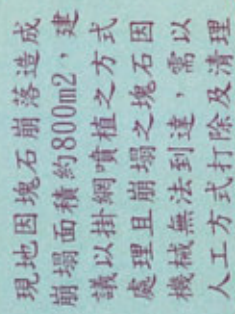 現地因塊石崩落造成
崩塌面積約800m2，建
議以掛網噴植之方式
處理且崩塌之塊石因
機械無法到達，需以
人工方式打除及清理